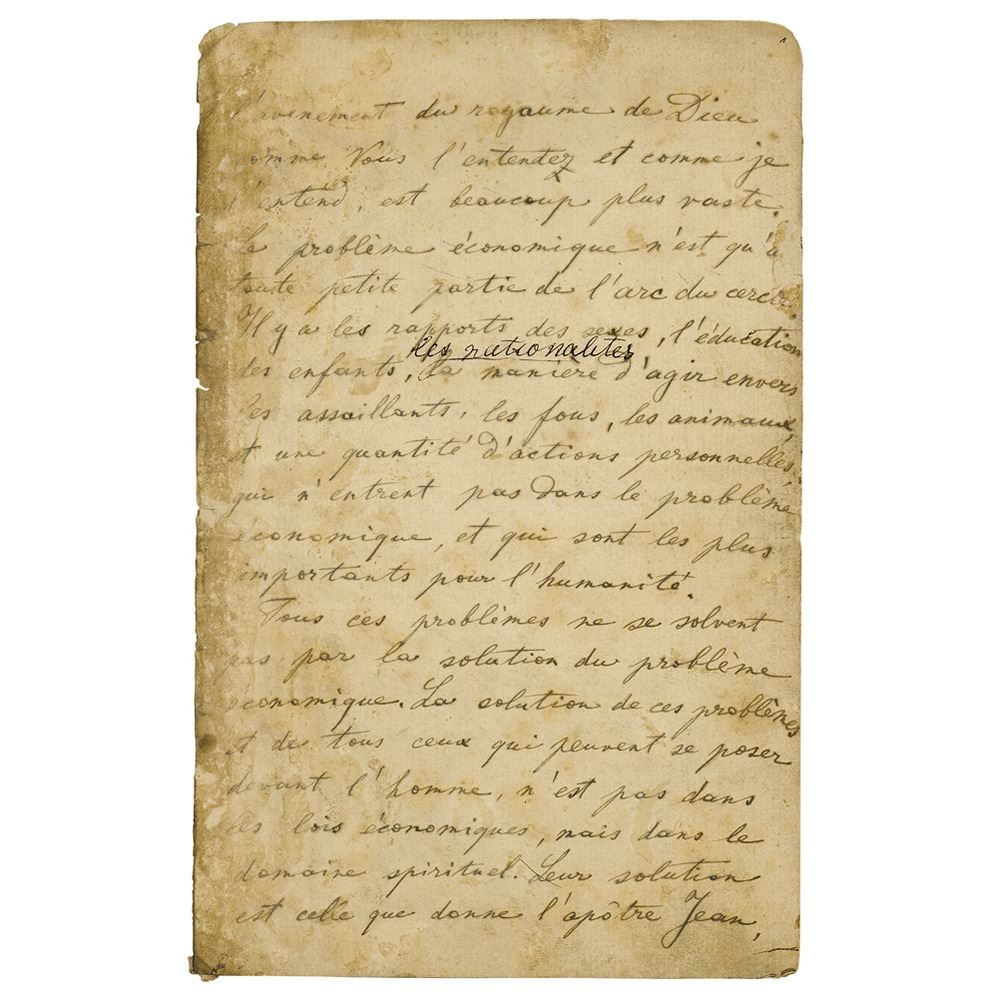 l'avènement du royaume de Dieu
comme Vous l'entendez et comme je
l'entend, est beaucoup plus vaste.
Le problème économique n'est qu'u
toute petite partie de l'arc du cercle.
Il y a les rapports des sexes, l'éducation
les nationalités
des enfants, la manière d'agir envers
les assaillants, les fous, les animaux,
et une quantité d'actions personnelles,
qui n'entrent pas dans le problème
économique, et qui sont les plus
importants pour l'humanité.
Tous ces problèmes ne se solvent
pas par la solution du problème
économique. La solution de ces problèmes
et de tous ceux qui peuvent se poser
devant l'homme, n'est pas dans
les lois économiques, mais dans le
domaine spirituel. Leur solution
est celle que donne l'apôtre Jean,